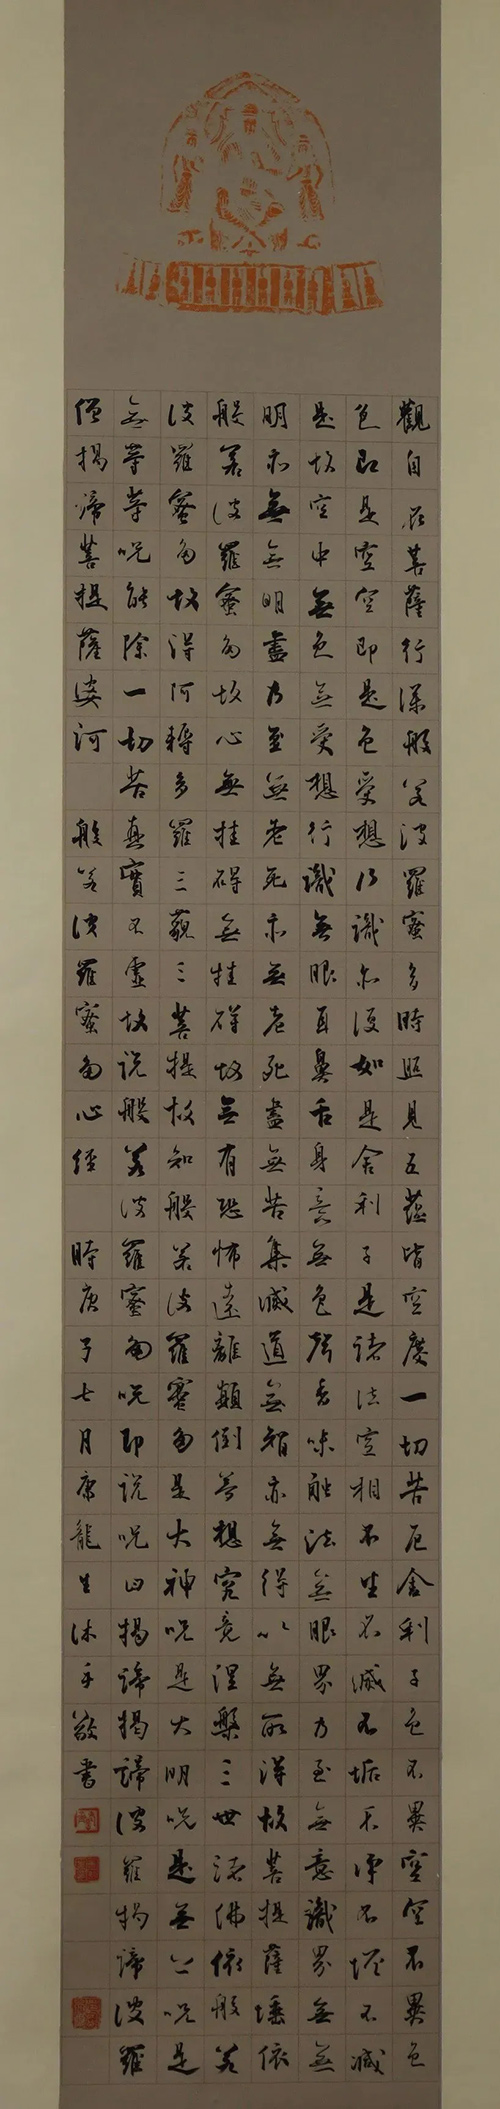 觀自在菩薩行深般若波羅蜜多時照見五蘊皆空度一切苦厄舍利子色不異空空不異色
色即是空空即是色受想行識亦復如是舍利子是諸法空相不生不滅不垢不淨不增不減
是故空中無色無受想行識無眼耳鼻舌身意無色聲香味觸法無眼界乃至無意識界無無
明亦無無明盡乃至無老死亦無老死盡無苦集滅道無智亦無得以無所得故菩提薩埵依
般若波羅蜜多故心無挂碍無挂碍故無有恐怖遠離顛倒夢想究竟涅槃三世諸佛依般若
波羅蜜多故得阿耨多羅三藐三菩提故知般若波羅蜜多是大神咒是大明咒是無上咒是
無等等咒能除一切苦真實不虛故說般若波羅蜜多咒即說咒曰揭諦揭諦波羅揭諦波羅
僧揭諦菩提薩婆訶 般若波羅蜜多心經 時庚子七月康龍生沐手敬書